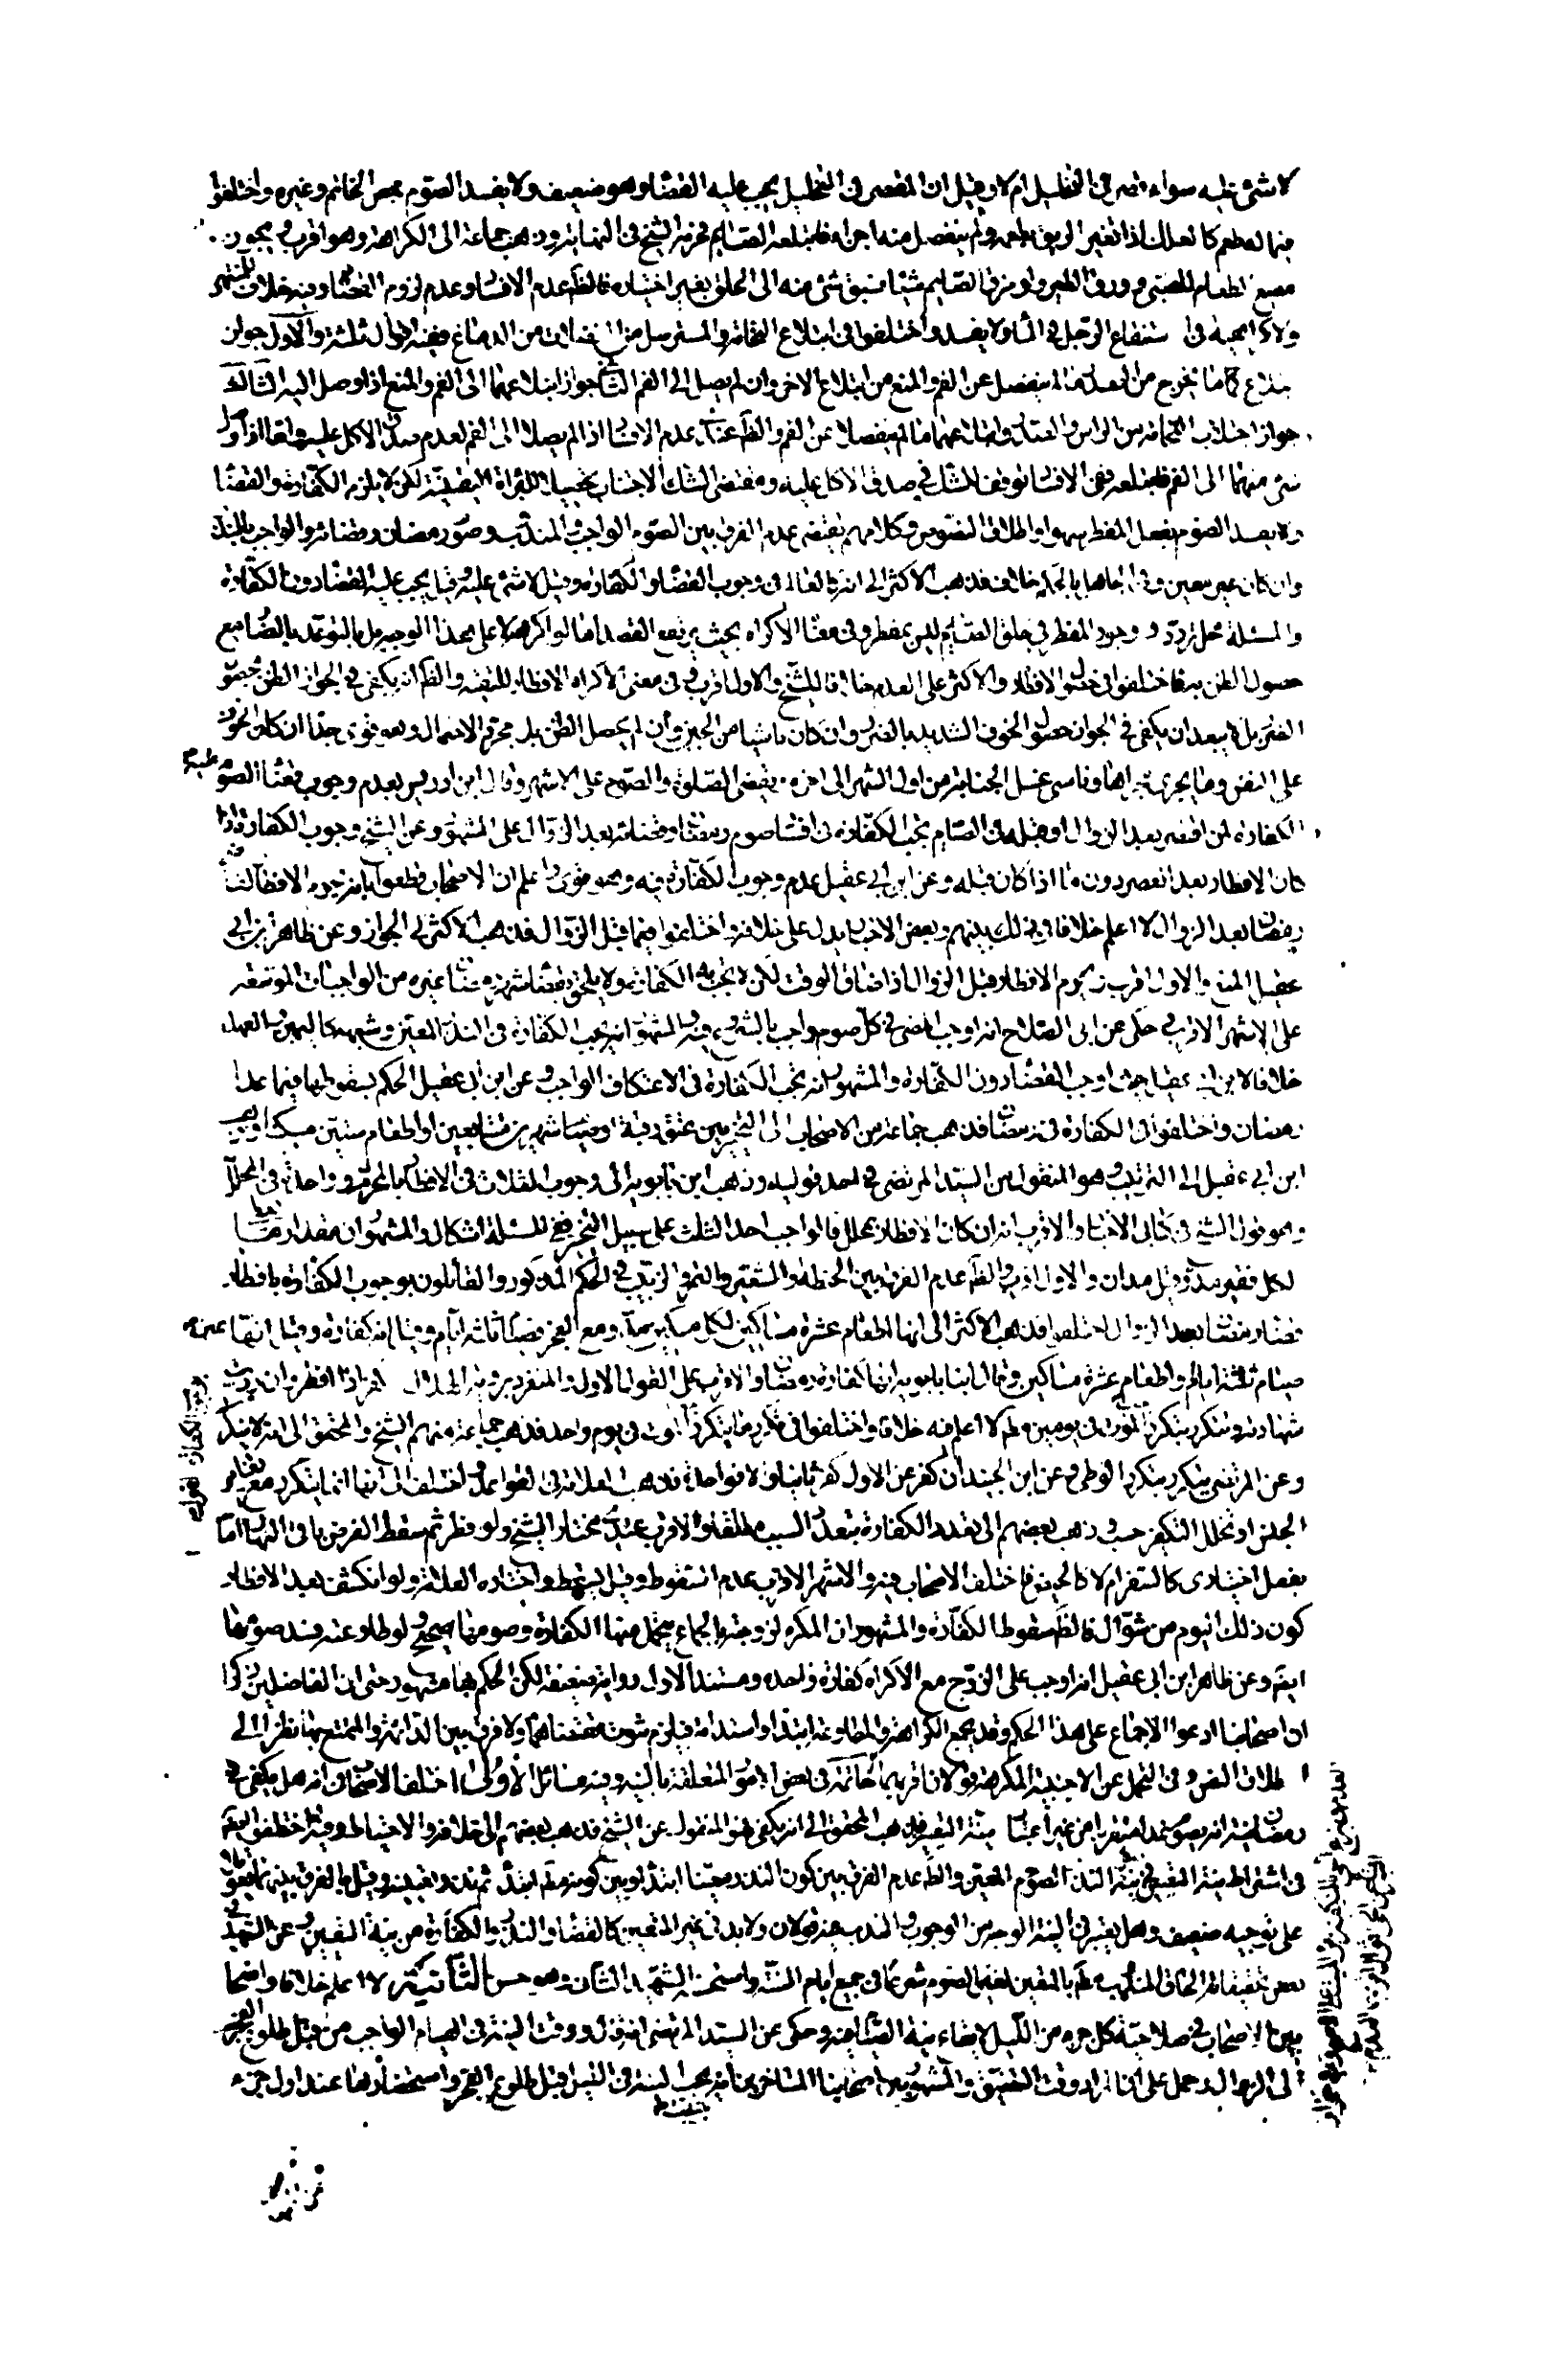 لا شئ عليه سواء قصر فى التخليل ام لا وقيل ان المقصر فى التخليل يجب عليه القضاء وهو ضعيف ولا يفسد الصوم بمص الخاتم وغيره واختلفوا
فيما له طعم كالعلك اذا تغير الريق بطعمه ولم ينفصل منه اجزاء فابتلعه الصايم فحرمه الشيخ فى النهاية وذهب جماعة الى الكراهة وهو اقرب ويجوز
مضغ الطعام للصبى وزق الطير ولو مضغ الصايم شيئا فسبق شئ منه الى الحلق بغير اختياره فالظ عدم الافساد وعدم لزوم القضاء وفيه خلاف للمنتهى
ولا كراهية فى استنقاع الرجل فى الماء ولا يفسد واختلفوا فى ابتلاع النخامة والمسترسل من الفضلات من الدماغ ففيه اقوال ثلثة الاول جواز
ابتلاع ما يخرج من الصدر ما لم ينفصل عن الفم والمنع من ابتلاع الاخر وان لم يصل الى الفم الثانى جواز ابتلاعهما الى الفم والمنع اذا وصل اليه الثالث
جواز اجتلاب النخامة من الراس والصدر وابتلاعهما ما لم ينفصلا عن الفم والظ عندى عدم الافساد اذا لم يصلا الى الفم لعدم صدق الاكل عليه واما اذا وصل
شئ منهما الى الفم فابتلعه ففى الافساد توقف للشك فى صدق الاكل عليه ومقتضى الشك الاجتناب تحصيلا للبراءة اليقينية لكن لا يلزم الكفارة والقضا
ولا يفسد الصوم بفعل المفطر سهوا واطلاق النصوص وكلامهم يقتضى عدم الفرق بين الصوم الواجب والمندوب وصوم رمضان وقضائه والواجب بالنذر
وان كان غير معين وفى الجاهل بالحكم خلاف فذهب الاكثر الى انه كالعالم فى وجوب القضاء والكفارة وقيل لا شئ عليه وقيل يجب عليه القضاء دون الكفارة
والمسئلة محل تردد و وجود المفطر فى حلق الصايم ليس بمفطر وفى معنى الاكراه بحيث يرتفع القصد اما لو اكره لا على هذا الوجه بل بالتوعد بالضرر مع
حصول الظن به فاختلفوا فى حصول الافطار والاكثر على العدم خلافا للشيخ والاول اقرب وفى معنى الاكراه الافطار للتقية والظ انه يكفى فى الجواز الظن بحصول
الضرر بل لا يبعد ان يكفى فى الجواز حصول الخوف الشديد بالضرر وان كان ناشيا من الجبن وان لم يحصل الظن بل مجرد الاحتمال وهو قوى جدا ان كان الخوف
على النفس وما يجرى مجراها وناسى غسل الجنابة من اول الشهر الى اخره يقضى الصلوة والصوم على الاشهر وقال ابن ادريس بعدم وجوب قضاء الصوم عليه
الكفارة لمن افطر بعد الزوال او قبله فى الصيام يجب الكفارة فى افساد صوم رمضان وقضائه بعد الزوال على المشهور وعن الشيخ وجوب الكفارة اذا
كان الافطار بعد العصر دون ما اذا كان قبله وعن ابن ابى عقيل عدم وجوب الكفارة فيه وهو قوى واعلم ان الاصحاب قطعوا بانه يحرم الافطار لقضاء
رمضان بعد الزوال لا اعلم خلافا فى ذلك بينهم وبعض الاخبار يدل على خلافه واختلفوا فيما قبل الزوال فذهب الاكثر الى الجواز وعن ظاهر ابن ابى
عقيل المنع والاول اقرب ويحرم الافطار قبل الزوال اذا ضاق الوقت لكن لا يجب به الكفارة ولا يلحق بقضاء شهر رمضان غيره من الواجبات الموسعة
على الاشهر الاقرب وحكى عن ابى الصلاح انه اوجب المضى فى كل صوم واجب بالشروع فيه والمشهور انه يجب الكفارة فى النذر المعين وشبهه كاليمين والعهد
خلافا لابن ابى عقيل حيث اوجب القضاء دون الكفارة والمشهور انه يجب الكفارة فى الاعتكاف الواجب وعن ابن ابى عقيل الحكم بسقوطها فيما عدا
رمضان واختلفوا فى الكفارة فى رمضان فذهب جماعة من الاصحاب الى التخيير بين عتق رقبة او صيام شهرين متتابعين او اطعام ستين مسكينا وذهب
ابن ابى عقيل الى الترتيب وهو المنقول من السيد المرتضى فى احد قوليه وذهب ابن بابويه الى وجوب الثلاث فى الافطار بالمحرم وواحدة فى المحلل
وهو قول الشيخ فى كتابى الاخبار والاقرب انه ان كان الافطار بمحلل فالواجب احد الثلث على سبيل التخيير وفى المسئلة اشكال والمشهور ان مقدار ما
لكل فقير مد وقيل مدان والاول اقرب والظ عدم الفرق بين الحنطة والشعير والتمر والزبيب فى الحكم المذكور والقائلون بوجوب الكفارة بافطار
قضاء رمضان بعد الزوال اختلفوا فذهب الاكثر الى انها اطعام عشرة مساكين لكل مسكين مد ومع العجز صيام ثلثة ايام وقيل انه كفارة يمين وقيل انها
صيام ثلثة ايام واطعام عشرة مساكين وقال ابنا بابويه انها كفارة رمضان والاقرب على القول الاول والمنفرد بروية الهلال اذا افطر وان ردت
شهادته وتتكرر بتكرر الموجب فى يومين ولم اعلم فيه خلافا واختلفوا فى تكررها بتكرر الموجب فى يوم واحد فذهب جماعة منهم الشيخ والمحقق الى انه لا يتكرر
وعن المرتضى يتكرر بتكرر الوطى وعن ابن الجنيد ان كفر عن الاول كفر ثانيا والا فواحدة وذهب العلامة فى المختلف الى انها يتكرر مع تغاير
الجنس او تخلل التكفير وذهب بعضهم الى تعدد الكفارة بتعدد السبب مطلقا والاقرب عندى مختار الشيخ ولو افطر ثم سقط الفرض باقى النهار اما
بفعل اختيارى كالسفر ام لا كالحيض فاختلف الاصحاب فيه والاشهر الاقرب عدم السقوط وقيل يسقط واختاره العلامة ولو انكشف بعد الافطار
كون ذلك اليوم من شوال فالظ سقوط الكفارة والمشهور ان المكره لزوجته بالجماع يتحمل عنها الكفارة وصومها صحيح ولو طاوعته فسد صومها
ايضا وعن ظاهر ابن ابى عقيل انه اوجب على الزوج مع الاكراه كفارة واحدة ومستند الاول رواية ضعيفة لكن الحكم بها مشهور حتى ان الفاضلين ذكرا
ان اصحابنا ادعوا الاجماع على هذا الحكم وقد يجمع الاكراه والمطاوعة ابتداء واستدامة فيلزم ثبوت مقتضاهما ولا فرق بين الدائمة والمتمتع بها نظرا الى
اطلاق النص وفى التحمل عن الاجنبية المكرهة قولان اقربهما خاتمة فى بعض الامور المتعلقة بالنية وفيه مسائل الاولى اختلف الاصحاب انه هل يكفى فى
رمضان نية انه يصوم غدا متقربا من غير اعتبار نية التعيين فذهب المحقق الى انه يكفى وهو المنقول عن الشيخ وذهب بعضهم الى خلافه والاحتياط وقد اختلفوا ايضا
فى اشتراط نية التعيين فى نية النذر الصوم المعين والظ عدم الفرق بين كون النذر معينا ابتداء وبين كونه مطلقا ثم نذر تعيينه وقيل بالفرق بينهما وهو
على توجيه ضعيف وهل يعتبر فى النية الوجه من الوجوب والندب فيه قولان ولا بد فى غير المعين كالقضاء والنذر والكفارة من نية التعيين وعن الشهيد
فى بعض تحقيقاته الحاق المندوب بالمعين لتعين الصوم شرعا فى جميع ايام السنة واستحسنه الشهيد الثانى وهو حسن الثانية لا اعلم خلافا واضحا
بين الاصحاب فى صلاحية كل جزء من الليل لايقاع نية الصيام فيه وحكى عن السيد المرتضى انه قال ووقت النية فى الصيام الواجب من قبل طلوع الفجر
الى الزوال وحمل على انه اراد وقت التضيق والمشهور بين اصحابنا المتاخرين انه يجب النية فى الليل قبل طلوع الفجر واستحضارها عند اول جزء